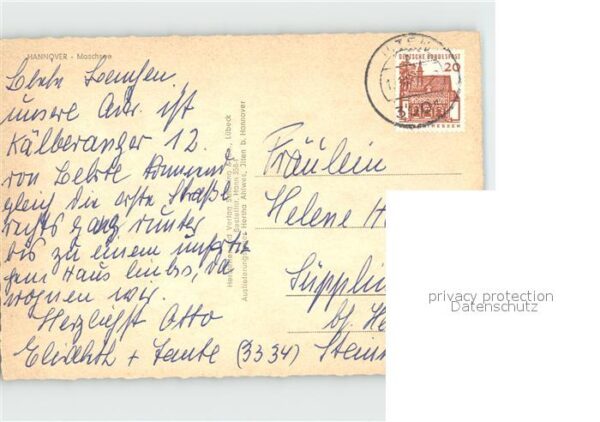 HANNOVER - Maschsee
unsere Adr. ist
Kälberanger 12.
von Lehrte kommend
gleich die erste Straße
rechts ganz runter
bis zu einem
Haus links, da
wohnen wir.
Herzlichst Otto
Elisabeth + Tante
Herstellung und Verlag Schöning & Co., Lübeck
Auslieferung: Hertha Ahlwes, Ilten b. Hannover
DEUTSCHE BUNDESPOST
20
Fräulein
Helene H
Süpplin
b. He
(3334) Stein
privacy protection
Datenschutz